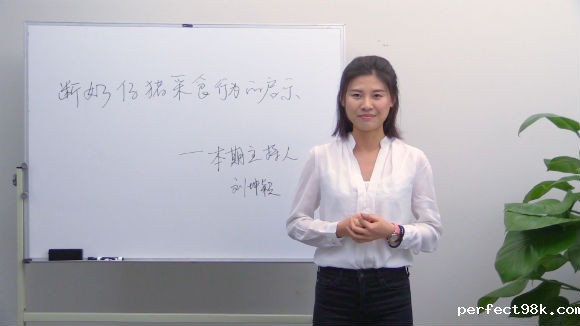 断奶仔猪采食行为的启示
—本期主持人
刘坤颖
perfect98k.com